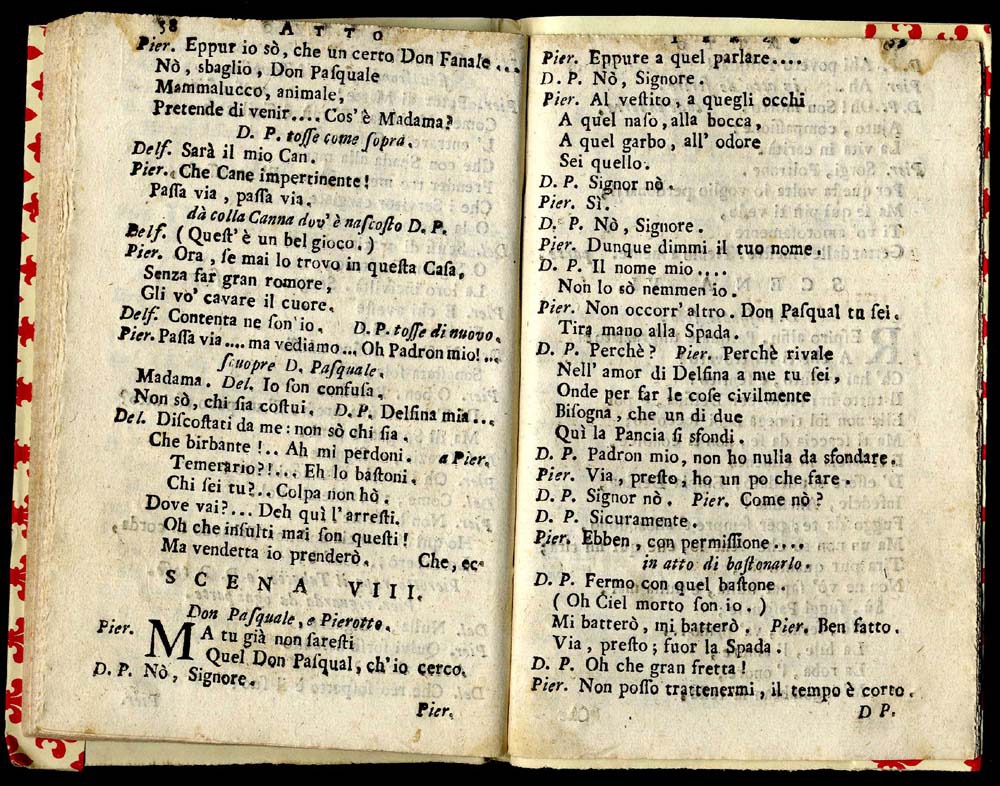 58 ATTO
Pier. Eppur io sò, che un certo Don Fanale ...
Nò, sbaglio, Don Paſquale
Mammalucco, animale,
Pretende di venir.... Cos'è Madama?
D. P. toſſe come ſopra.
Delf. Sarà il mio Can.
Pier. Che Cane impertinente!
Paſſa via, paſſa via.
dà colla Canna dov'è naſcoſto D. P.
Belf. (Queſt'è un bel gioco.)
Pier. Ora, ſe mai lo trovo in queſta Caſa,
Senza far gran romore,
Gli vo' cavare il cuore.
Delf. Contenta ne ſon'io. D. P. toſſe di nuovo.
Pier. Paſſa via.... ma vediamo... Oh Padron mio!...
ſcuopre D. Paſquale.
Madama. Del. Io ſon confuſa.
Non sò, chi ſia coſtui. D. P. Delfina mia...
Del. Diſcoſtati da me: non sò chi ſia.
Che birbante!.. Ah mi perdoni. a Pier.
Temerario?!... Eh lo baſtoni.
Chi ſei tu?.. Colpa non hò.
Dove vai?... Deh quì l'arreſti.
Oh che inſulti mai ſon queſti!
Ma vendetta io prenderò. Che, ec.
SCENA VIII.
Don Paſquale, e Pierotto.
Pier. MA tu già non ſareſti
Quel Don Paſqual, ch'io cerco.
D. P. Nò, Signore.
Pier.
Pier. Eppure a quel parlare....
D. P. Nò, Signore.
Pier. Al veſtito, a quegli occhi
A quel naſo, alla bocca,
A quel garbo, all' odore
Sei quello.
D. P. Signor nò.
Pier. Sì.
D. P. Nò, Signore.
Pier. Dunque dimmi il tuo nome..
D. P. Il nome mio....
Non lo sò nemmen io.
Pier. Non occorr' altro. Don Paſqual tu ſei.
Tira mano alla Spada.
D. P. Perchè? Pier. Perchè rivale
Nell' amor di Delfina a me tu ſei,
Onde per far le coſe civilmente
Biſogna, che un di due
Quì la Pancia ſi sfondi.
D. P. Padron mio, non ho nulla da sfondare.
Pier. Via, preſto, ho un po che fare.
D. P. Signor nò. Pier. Come nò?
D. P. Sicuramente.
Pier. Ebben, con permiſſione....
in atto di baſtonarlo.
D. P. Fermo con quel baſtone.
(Oh Ciel morto ſon io.)
Mi batterò, mi batterò. Pier. Ben fatto.
Via, preſto; fuor la Spada.
D. P. Oh che gran fretta!
Pier. Non poſſo trattenermi, il tempo è corto.
D P.